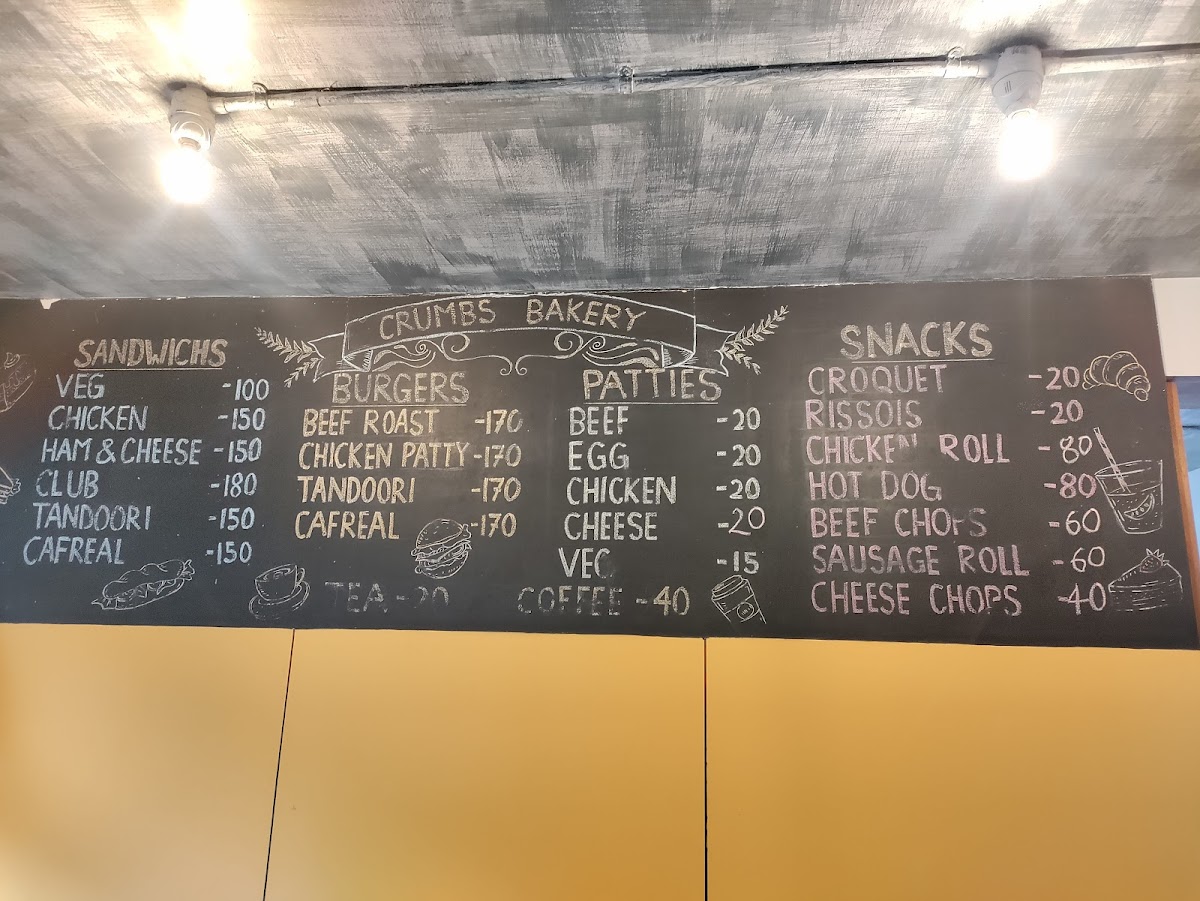 CRUMBS BAKERY
SANDWICHS
VEG -100
CHICKEN -150
HAM & CHEESE -150
CLUB -180
TANDOORI -150
CAFREAL -150
BURGERS
BEEF ROAST -170
CHICKEN PATTY -170
TANDOORI -170
CAFREAL -170
PATTIES
BEEF -20
EGG -20
CHICKEN -20
CHEESE -20
VEG -15
TEA -20
COFFEE -40
SNACKS
CROQUET -20
RISSOIS -20
CHICKEN ROLL -80
HOT DOG -80
BEEF CHOPS -60
SAUSAGE ROLL -60
CHEESE CHOPS -40